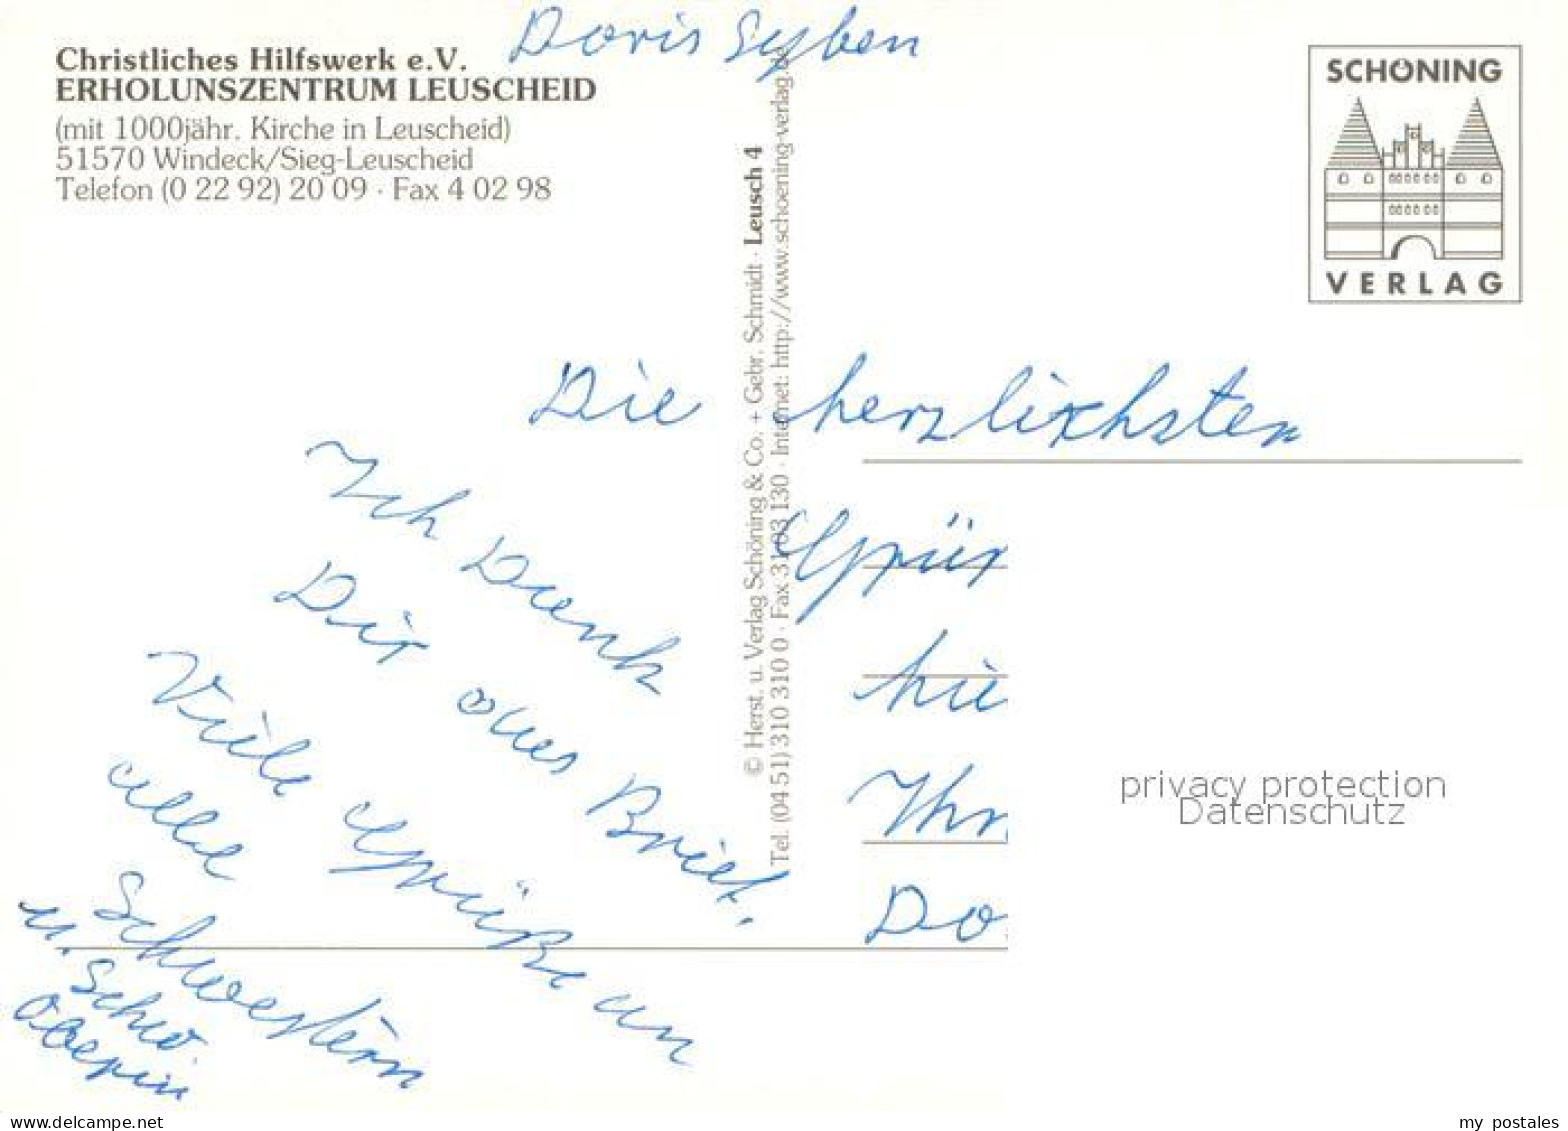 Doris Seyben
Christliches Hilfswerk e.V.
ERHOLUNSZENTRUM LEUSCHEID
(mit 1000jähr. Kirche in Leuscheid)
51570 Windeck/Sieg-Leuscheid
Telefon (0 22 92) 20 09 · Fax 4 02 98
SCHÖNING
VERLAG
© Herst. u. Verlag Schöning & Co. + Gebr. Schmidt · Leusch 4
Tel. (04 51) 310 310 0 · Fax 31 03 130 · Internet: http://www.schoening-verlag.
Die herzlichsten
Grüs
hie
Ihr
Do
Ich Dank
Dir
Brief.
Viele Grüße an
alle
Schwestern
u. Schw.
Oberin
privacy protection
Datenschutz
delcampe.net
my_postales